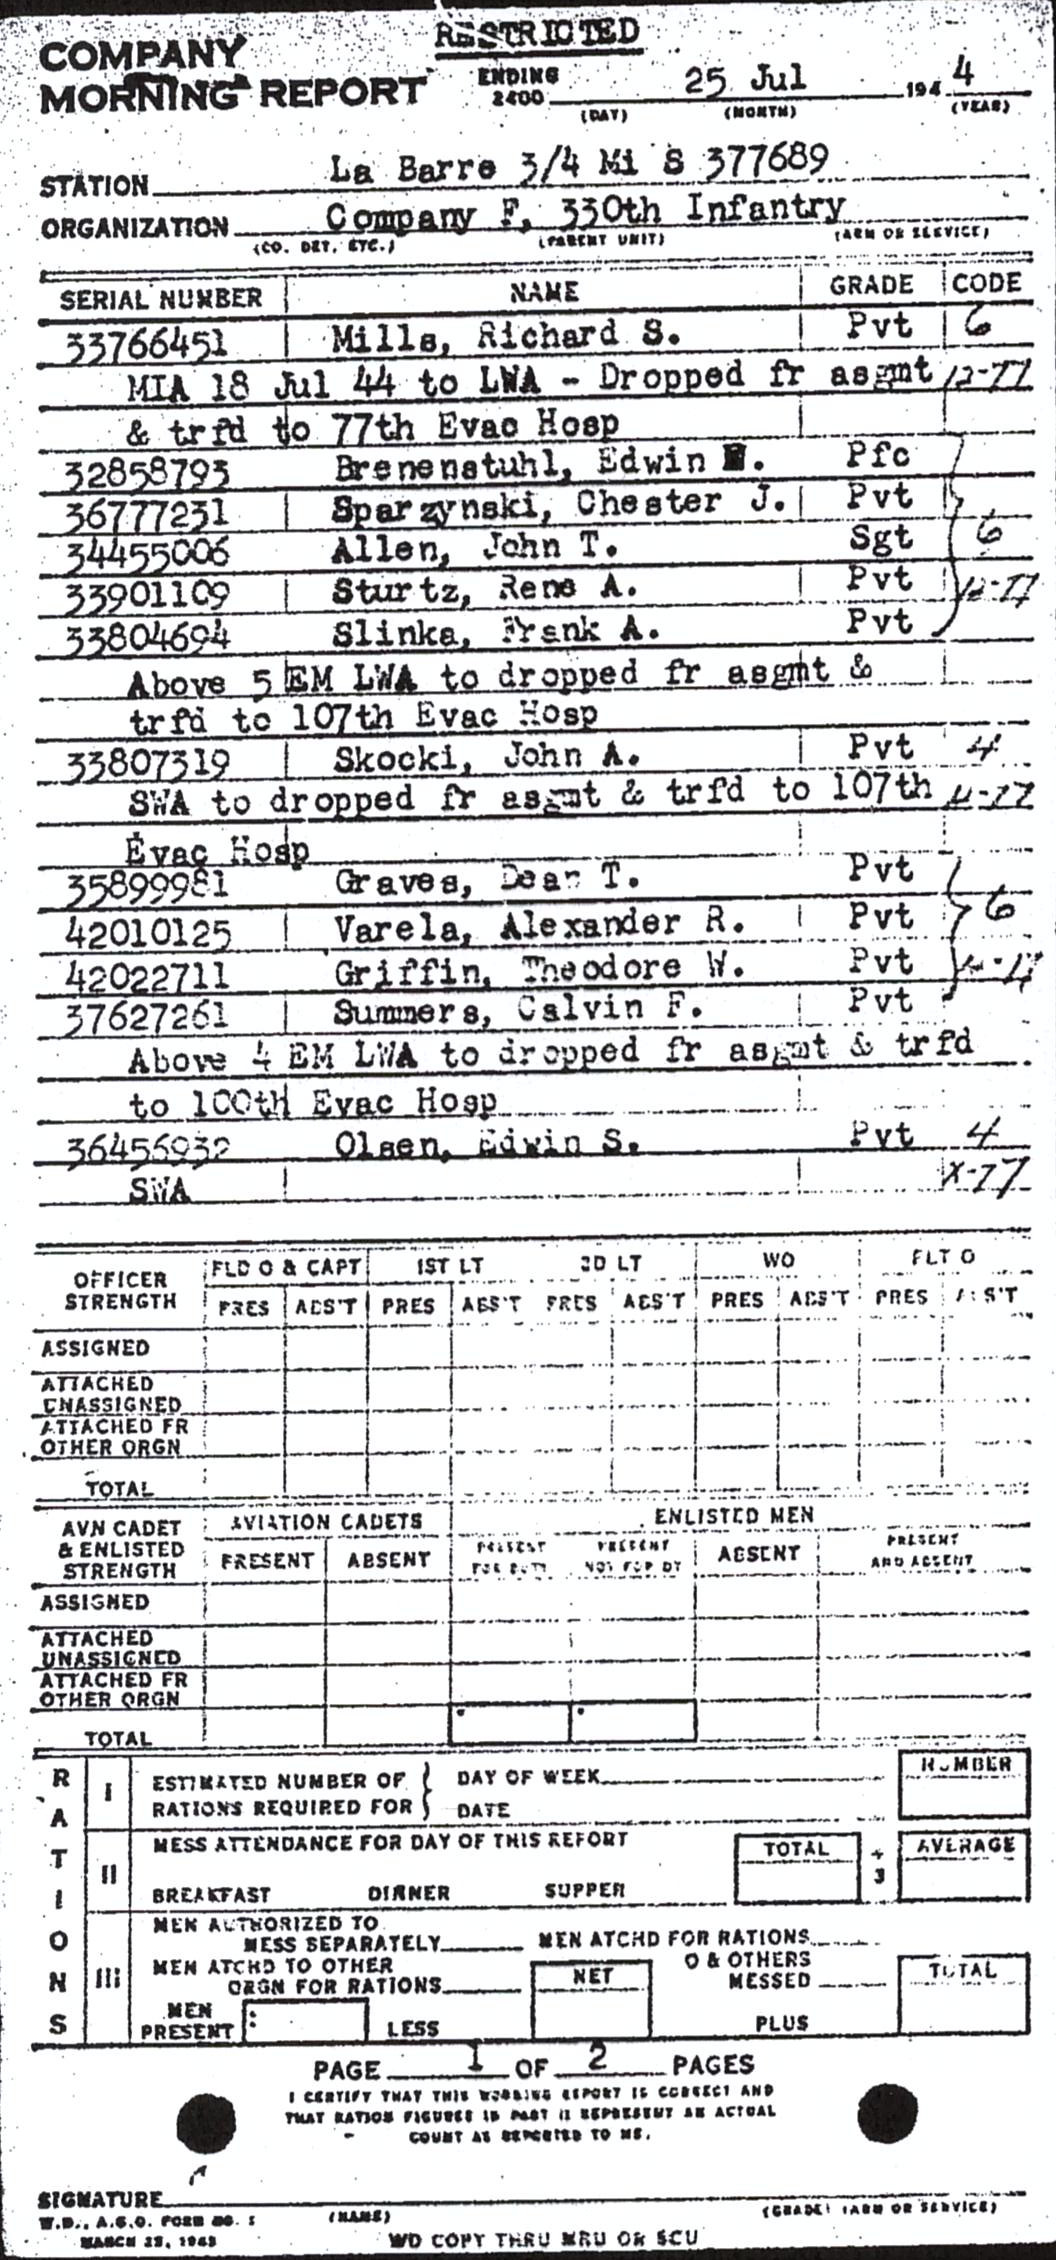 RESTRICTED
COMPANY
MORNING REPORT
ENDING
2400 25 Jul 194 4
(DAY) (MONTH) (YEAR)
STATION La Barre 3/4 Mi S 377689
ORGANIZATION Company F, 330th Infantry
(CO. DET. ETC.) (PARENT UNIT) (ARM OR SERVICE)
SERIAL NUMBER NAME GRADE CODE
33766451 Mills, Richard S. Pvt 6
MIA 18 Jul 44 to LWA - Dropped fr asgmt 12-77
& trfd to 77th Evac Hosp
32858793 Brenenstuhl, Edwin Pfc
36777231 Sparzynski, Chester J. Pvt
34455006 Allen, John T. Sgt 6
33901109 Sturtz, Rene A. Pvt 12-77
33804694 Slinka, Frank A. Pvt
Above 5 EM LWA to dropped fr asgmt &
trfd to 107th Evac Hosp
33807319 Skocki, John A. Pvt 4
SWA to dropped fr asgmt & trfd to 107th
Evac Hosp
35899981 Graves, Dean T. Pvt
42010125 Varela, Alexander R. Pvt 6
42022711 Griffin, Theodore W. Pvt
37627261 Summers, Calvin F. Pvt
Above 4 EM LWA to dropped fr asgmt & trfd
to 100th Evac Hosp
36456932 Olsen, Edwin S. Pvt 4
SWA X-77
OFFICER STRENGTH FLD O & CAPT 1ST LT 2D LT WO FLT O
PRES ABS'T PRES ABS'T PRES ABS'T PRES ABS'T PRES ABS'T
ASSIGNED
ATTACHED
UNASSIGNED
ATTACHED FR
OTHER ORGN
TOTAL
AVN CADET & ENLISTED STRENGTH AVIATION CADETS ENLISTED MEN
PRESENT ABSENT PRESENT FOR DUTY PRESENT NOT FOR DY ABSENT PRESENT AND ABSENT
ASSIGNED
ATTACHED
UNASSIGNED
ATTACHED FR
OTHER ORGN
TOTAL
RATIONS
I ESTIMATED NUMBER OF DAY OF WEEK NUMBER
RATIONS REQUIRED FOR DATE
II MESS ATTENDANCE FOR DAY OF THIS REPORT TOTAL ÷ 3 AVERAGE
BREAKFAST DINNER SUPPER
III MEN AUTHORIZED TO
MESS SEPARATELY MEN ATCHD FOR RATIONS
MEN ATCHD TO OTHER
ORGN FOR RATIONS NET O & OTHERS
MESSED TOTAL
MEN
PRESENT LESS PLUS
PAGE 1 OF 2 PAGES
I CERTIFY THAT THIS MORNING REPORT IS CORRECT AND
THAT RATION FIGURES IN PART II REPRESENT AN ACTUAL
COUNT AS REPORTED TO ME.
SIGNATURE
(NAME) (GRADE) (ARM OR SERVICE)
W.D., A.G.O. FORM NO. 1
MARCH 25, 1943
WD COPY THRU MRU OR SCU